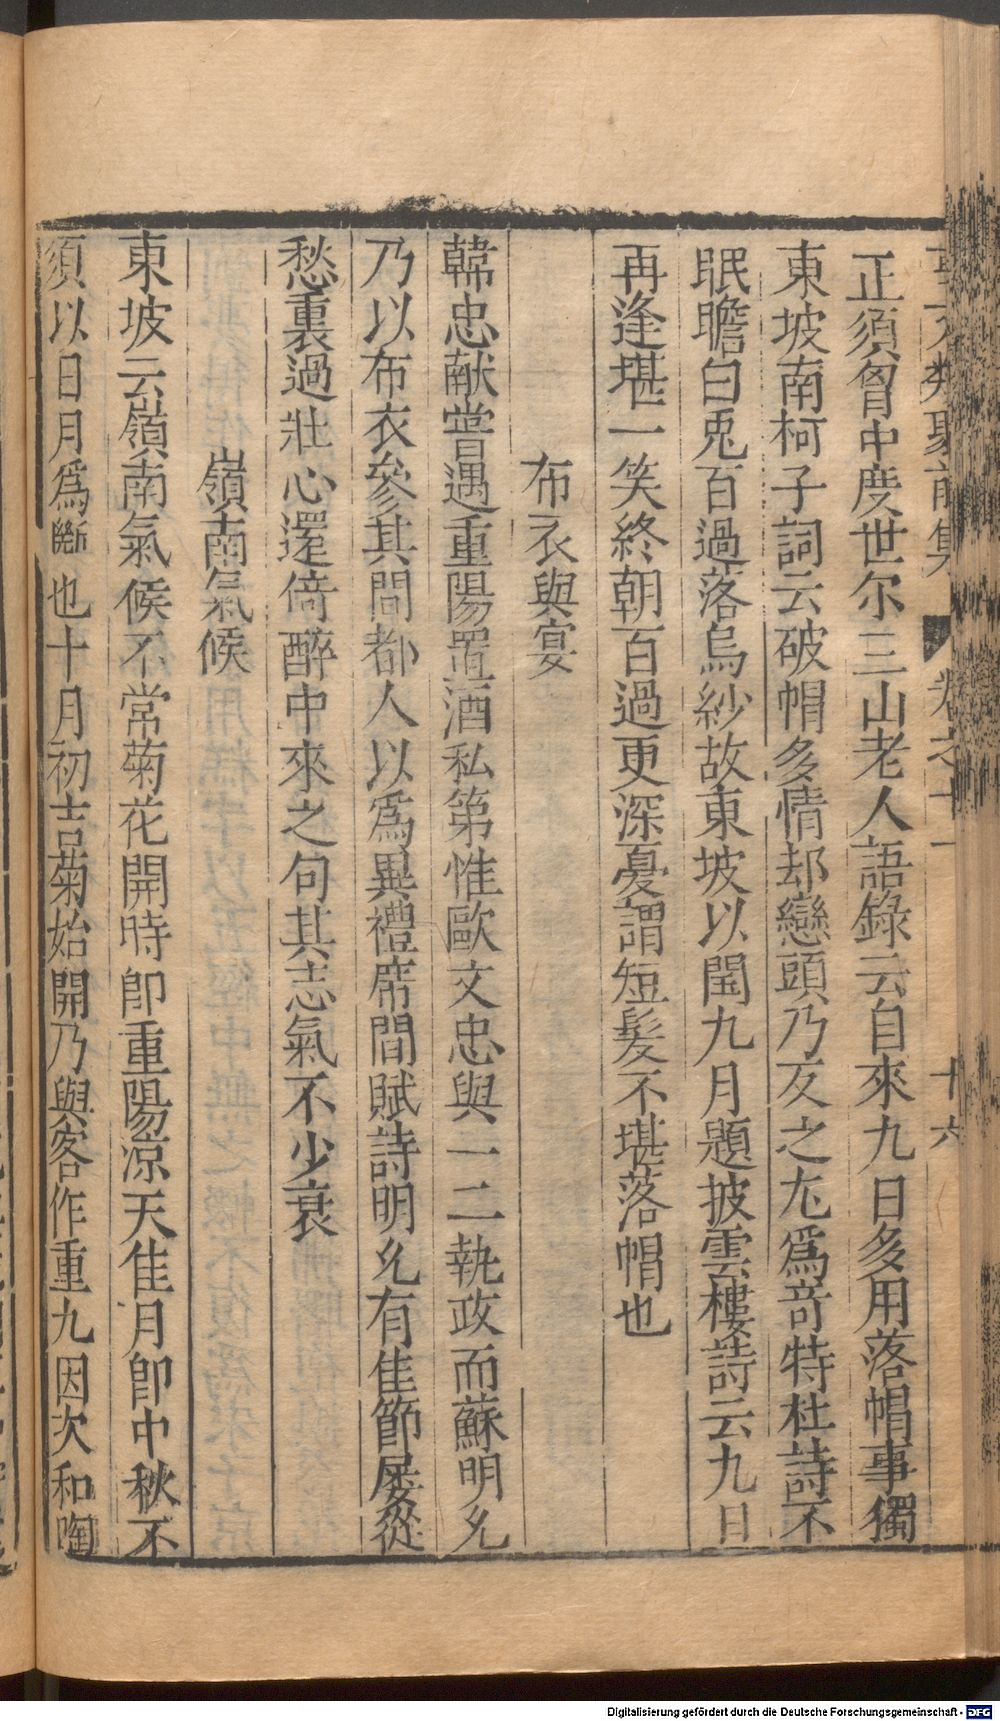 事文類聚前集 卷之十一 十六
正須胷中度世尔三山老人語錄云自來九日多用落帽事獨
東坡南柯子詞云破帽多情却戀頭乃反之尤爲竒特杜詩不
眠瞻白兎百過落烏紗故東坡以閏九月題披雲樓詩云九日
再逢堪一笑終朝百過更深憂謂短髮不堪落帽也
布衣與宴
韓忠献嘗遇重陽置酒私第惟歐文忠與一二執政而蘇明允
乃以布衣參其間都人以爲異禮席間賦詩明允有佳節屡從
愁裏過壯心還倚醉中來之句其志氣不少衰
嶺南氣候
東坡云嶺南氣候不常菊花開時即重陽凉天佳月即中秋不
須以日月爲斷也十月初吉菊始開乃與客作重九因次和陶
Digitalisierung gefördert durch die Deutsche Forschungsgemeinschaft - DFG